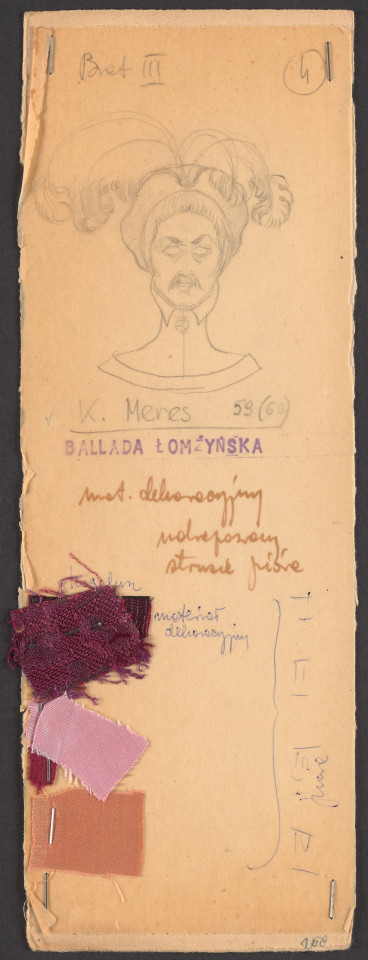 Bret III
4
K. Meres 59 (60)
BALLADA ŁOMŻYŃSKA
mat. dekoracyjny
udrapowany
strusie pióra
materiał
dekoracyjny
pióra